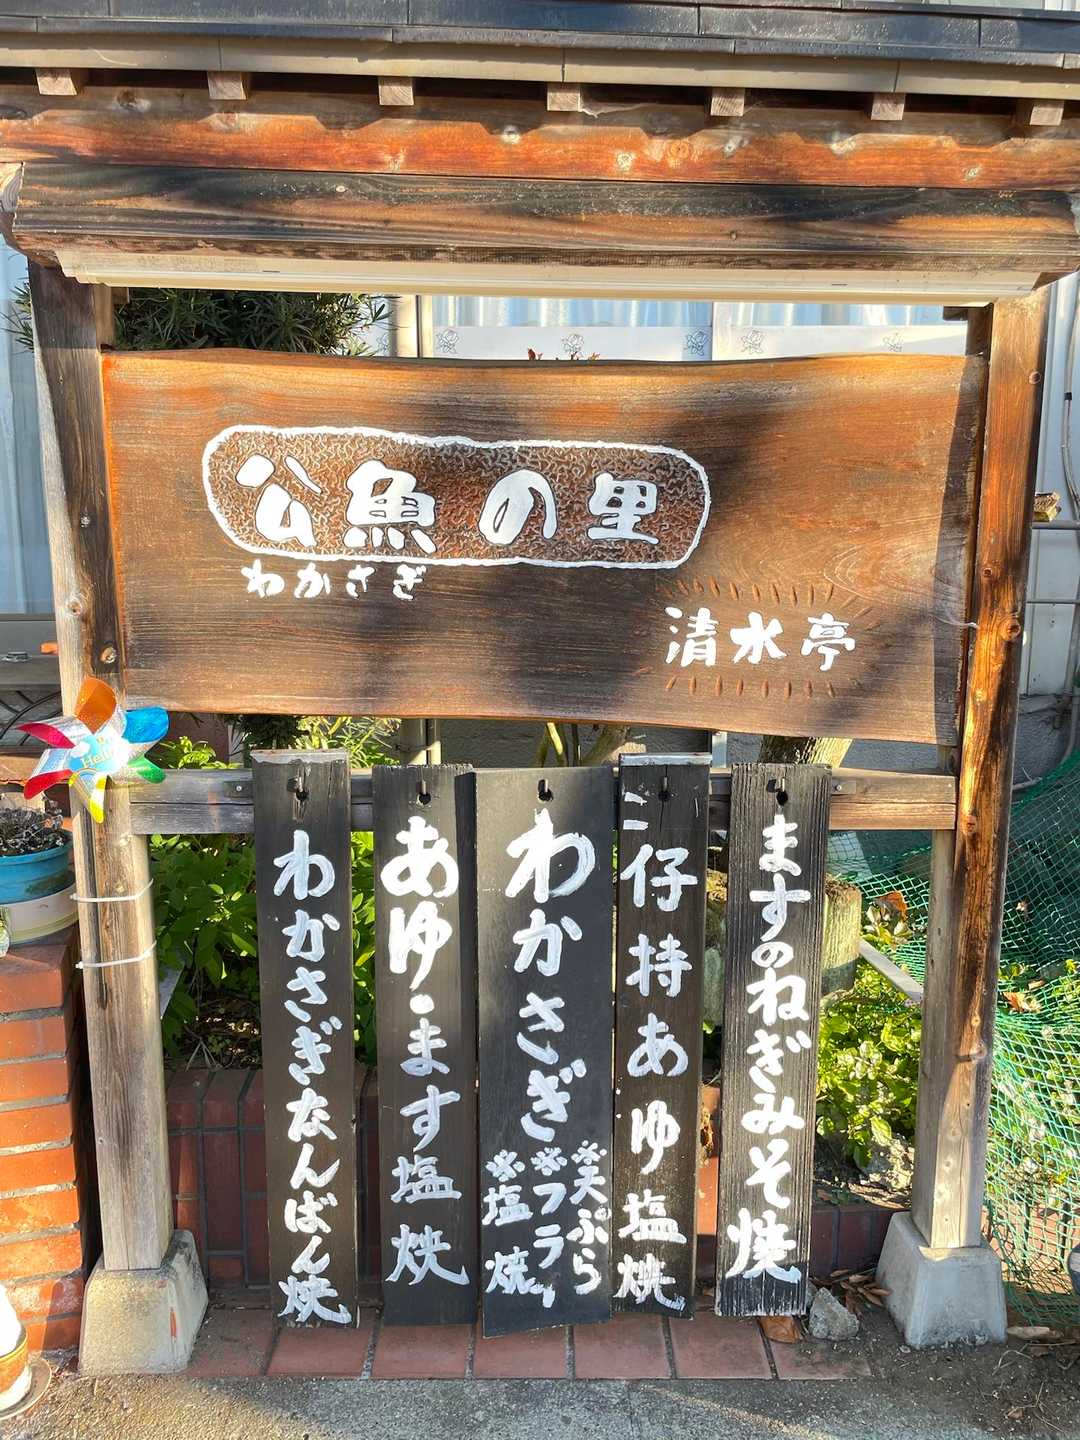 公魚の里
わかさぎ
清水亭
ますのねぎみそ焼
仔持あゆ塩焼
わかさぎ
※天ぷら
※フライ
※塩焼
あゆ・ます塩焼
わかさぎなんばん焼